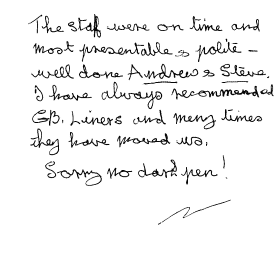 The staff were on time and
most presentable & polite -
well done Andrew & Steve.
I have always recommended
GB. Liners and many times
they have moved us.
Sorry no dark pen!